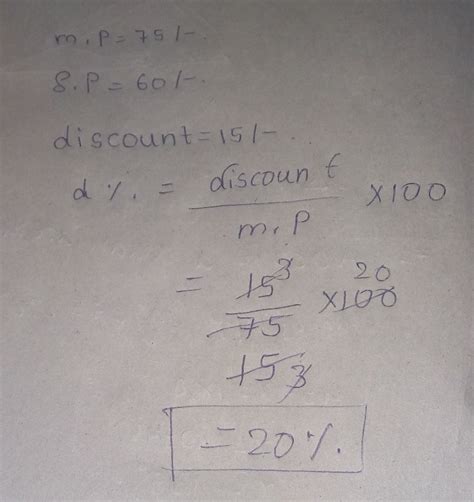 m.P = 75/-.
S.P = 60/-.
discount = 15/-.
d%. = discount / m.P × 100
= 15 3 / 75 15 3 × 100 20
= 20%.